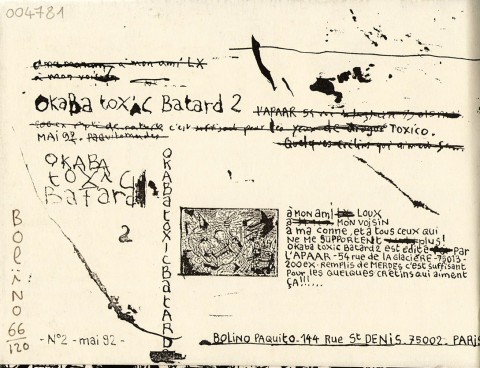 004781
à mon ami LX
à mon voisin
OKaBa toxic Batard 2
TOXICO.
MAI 92.
OKABA
toxic
Batard
2
OKABatoxicBatARD
à mon ami LOUX
à MON VOISIN
à ma conne, et à tous ceux qui
NE ME SUPPORTENT plus!
OKaBa toxic Batard 2 est édité Par
L'APAAR - 54 rue de la Glacière - 75013 -
200 ex - Remplis de MERDES c'est suffisant
Pour les quelques crétins qui aiment
ça!!!....
BoliNO
66/120
- N°2 - mai 92 -
BOLINO PAQUITO. 144 Rue St DENIS. 75002. PARIS